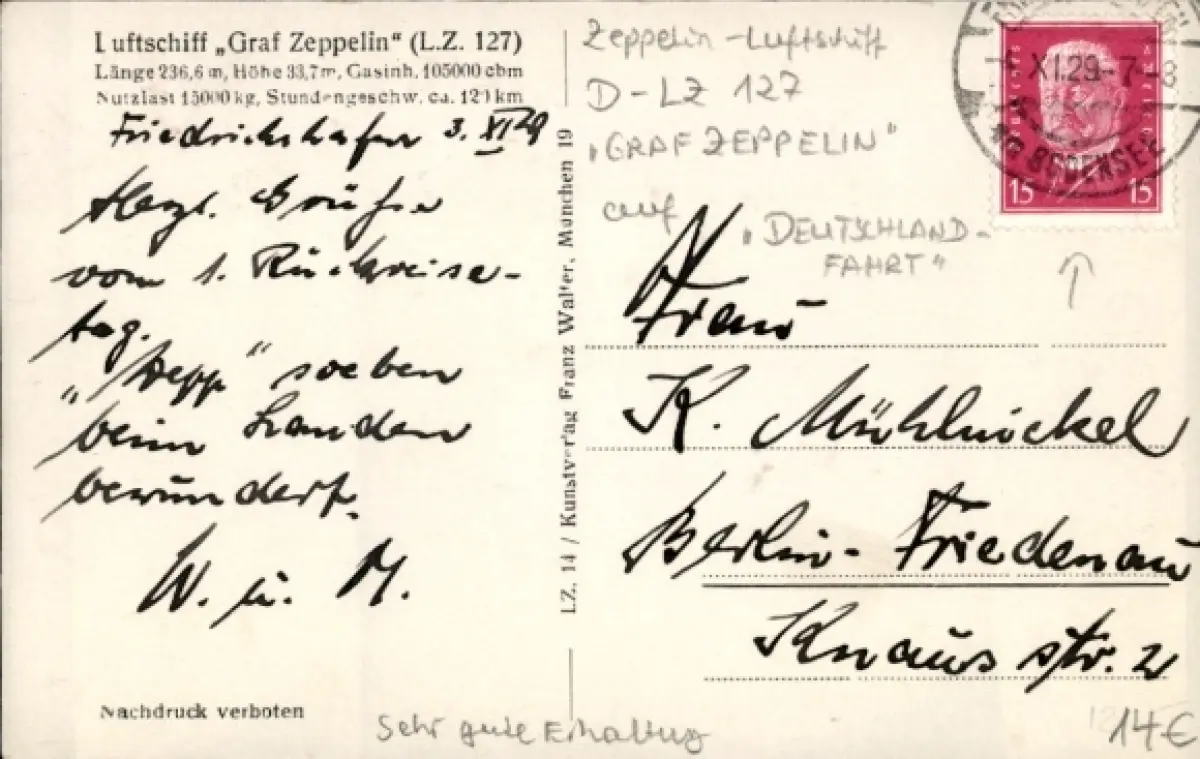 Luftschiff „Graf Zeppelin“ (L.Z. 127)
Länge 236,6 m, Höhe 33,7 m, Gasinh. 105000 cbm
Nutzlast 15000 kg, Stundengeschw. ca. 120 km
Friedrichshafen 3. XI 29
Herzl. Grüße
vom 1. Rückreise-
tag.
„Zepp“ soeben
beim Landen
bewundert.
W. u. M.
Nachdruck verboten
LZ. 14 / Kunstverlag Franz Walter, München 19
Zeppelin-Luftschiff
D-LZ 127
„GRAF ZEPPELIN“
auf
„DEUTSCHLAND-
FAHRT“
XI.29-7-8
BODENSEE
Deutsches Reich
15 15
Frau
K. Mühlnickel
Berlin-Friedenau
Knausstr. 2
Sehr gute Erhaltung
14€